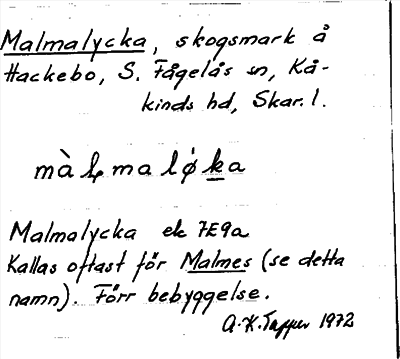 Malmalycka, skogsmark å
Hackebo, S. Fågelås sn, Kå-
kinds hd, Skar. l.
màLmaløka
Malmalycka ek 7E9a
Kallas oftast för Malmes (se detta
namn). Förr bebyggelse.
A.K. Tapper 1972